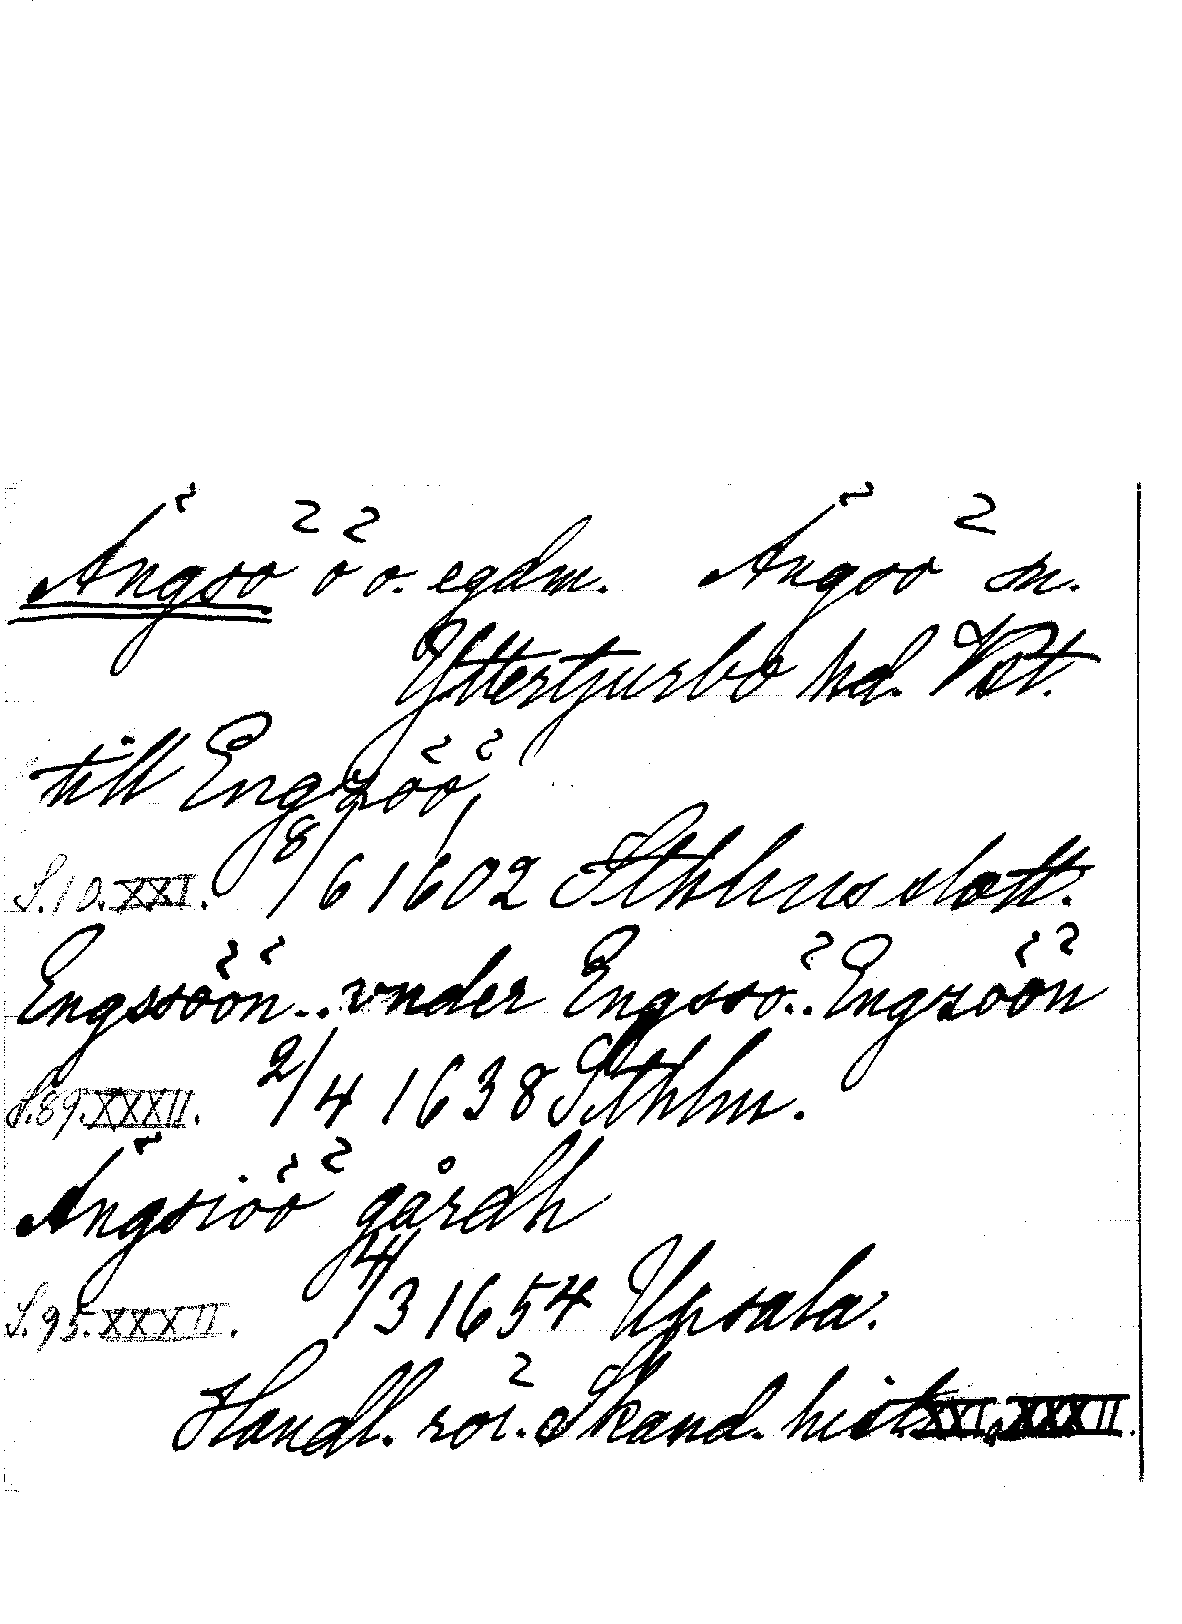 Ängsö ö o. egdm. Ängsö sn.
Yttertjurbo hd. Vstt.
till Engzöö,
S.10.XXI. 8/6 1602 Sthlms slott.
Engssöön.. vnder Engssö.. Engzöön
S.89.XXXII. 2/4 1638 Sthlm.
Ängsiöö gårdh
S.95.XXXII. 4/3 1654 Upsala.
Handl. rör. Skand. hist. XXI, XXXII.